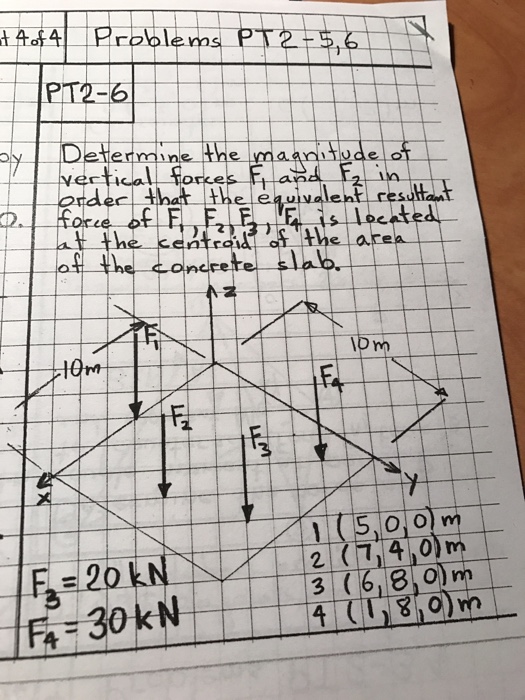 t 4 of 4 Problems PT2-5,6
PT2-6
Determine the magnitude of
vertical forces F₁ and F₂ in
order that the equivalent resultant
force of F₁, F₂, F₃, F₄ is located
at the centroid of the area
of the concrete slab.
z
F₁
10m
10m
F₄
F₂
F₃
x
y
1 (5,0,0)m
2 (7,4,0)m
3 (6,8,0)m
4 (1,8,0)m
F₃ = 20 kN
F₄ = 30 kN